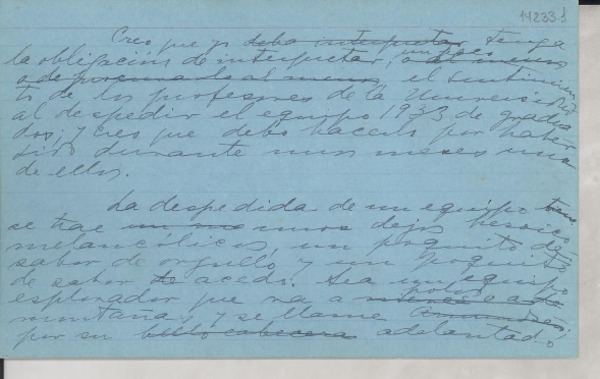 14233.1
Creo que yo debo interpretar tenga
la obligación de interpretar, un poco al menos
o de procurarlo al menos el sentimien
to de los profesores de la Universidad
al despedir el equipo 1933 de gradua
dos; y creo que debo hacerlo por haber
sido durante unos meses uno
de ellos.
La despedida de un equipo
se trae unos dejos heroico
melancólicos, un poquito de
sabor de orgullo y un poquito
de sabor acedo. Sea un equipo
explorador que va a
montañas y se llame
por su bello cabecera adelantado